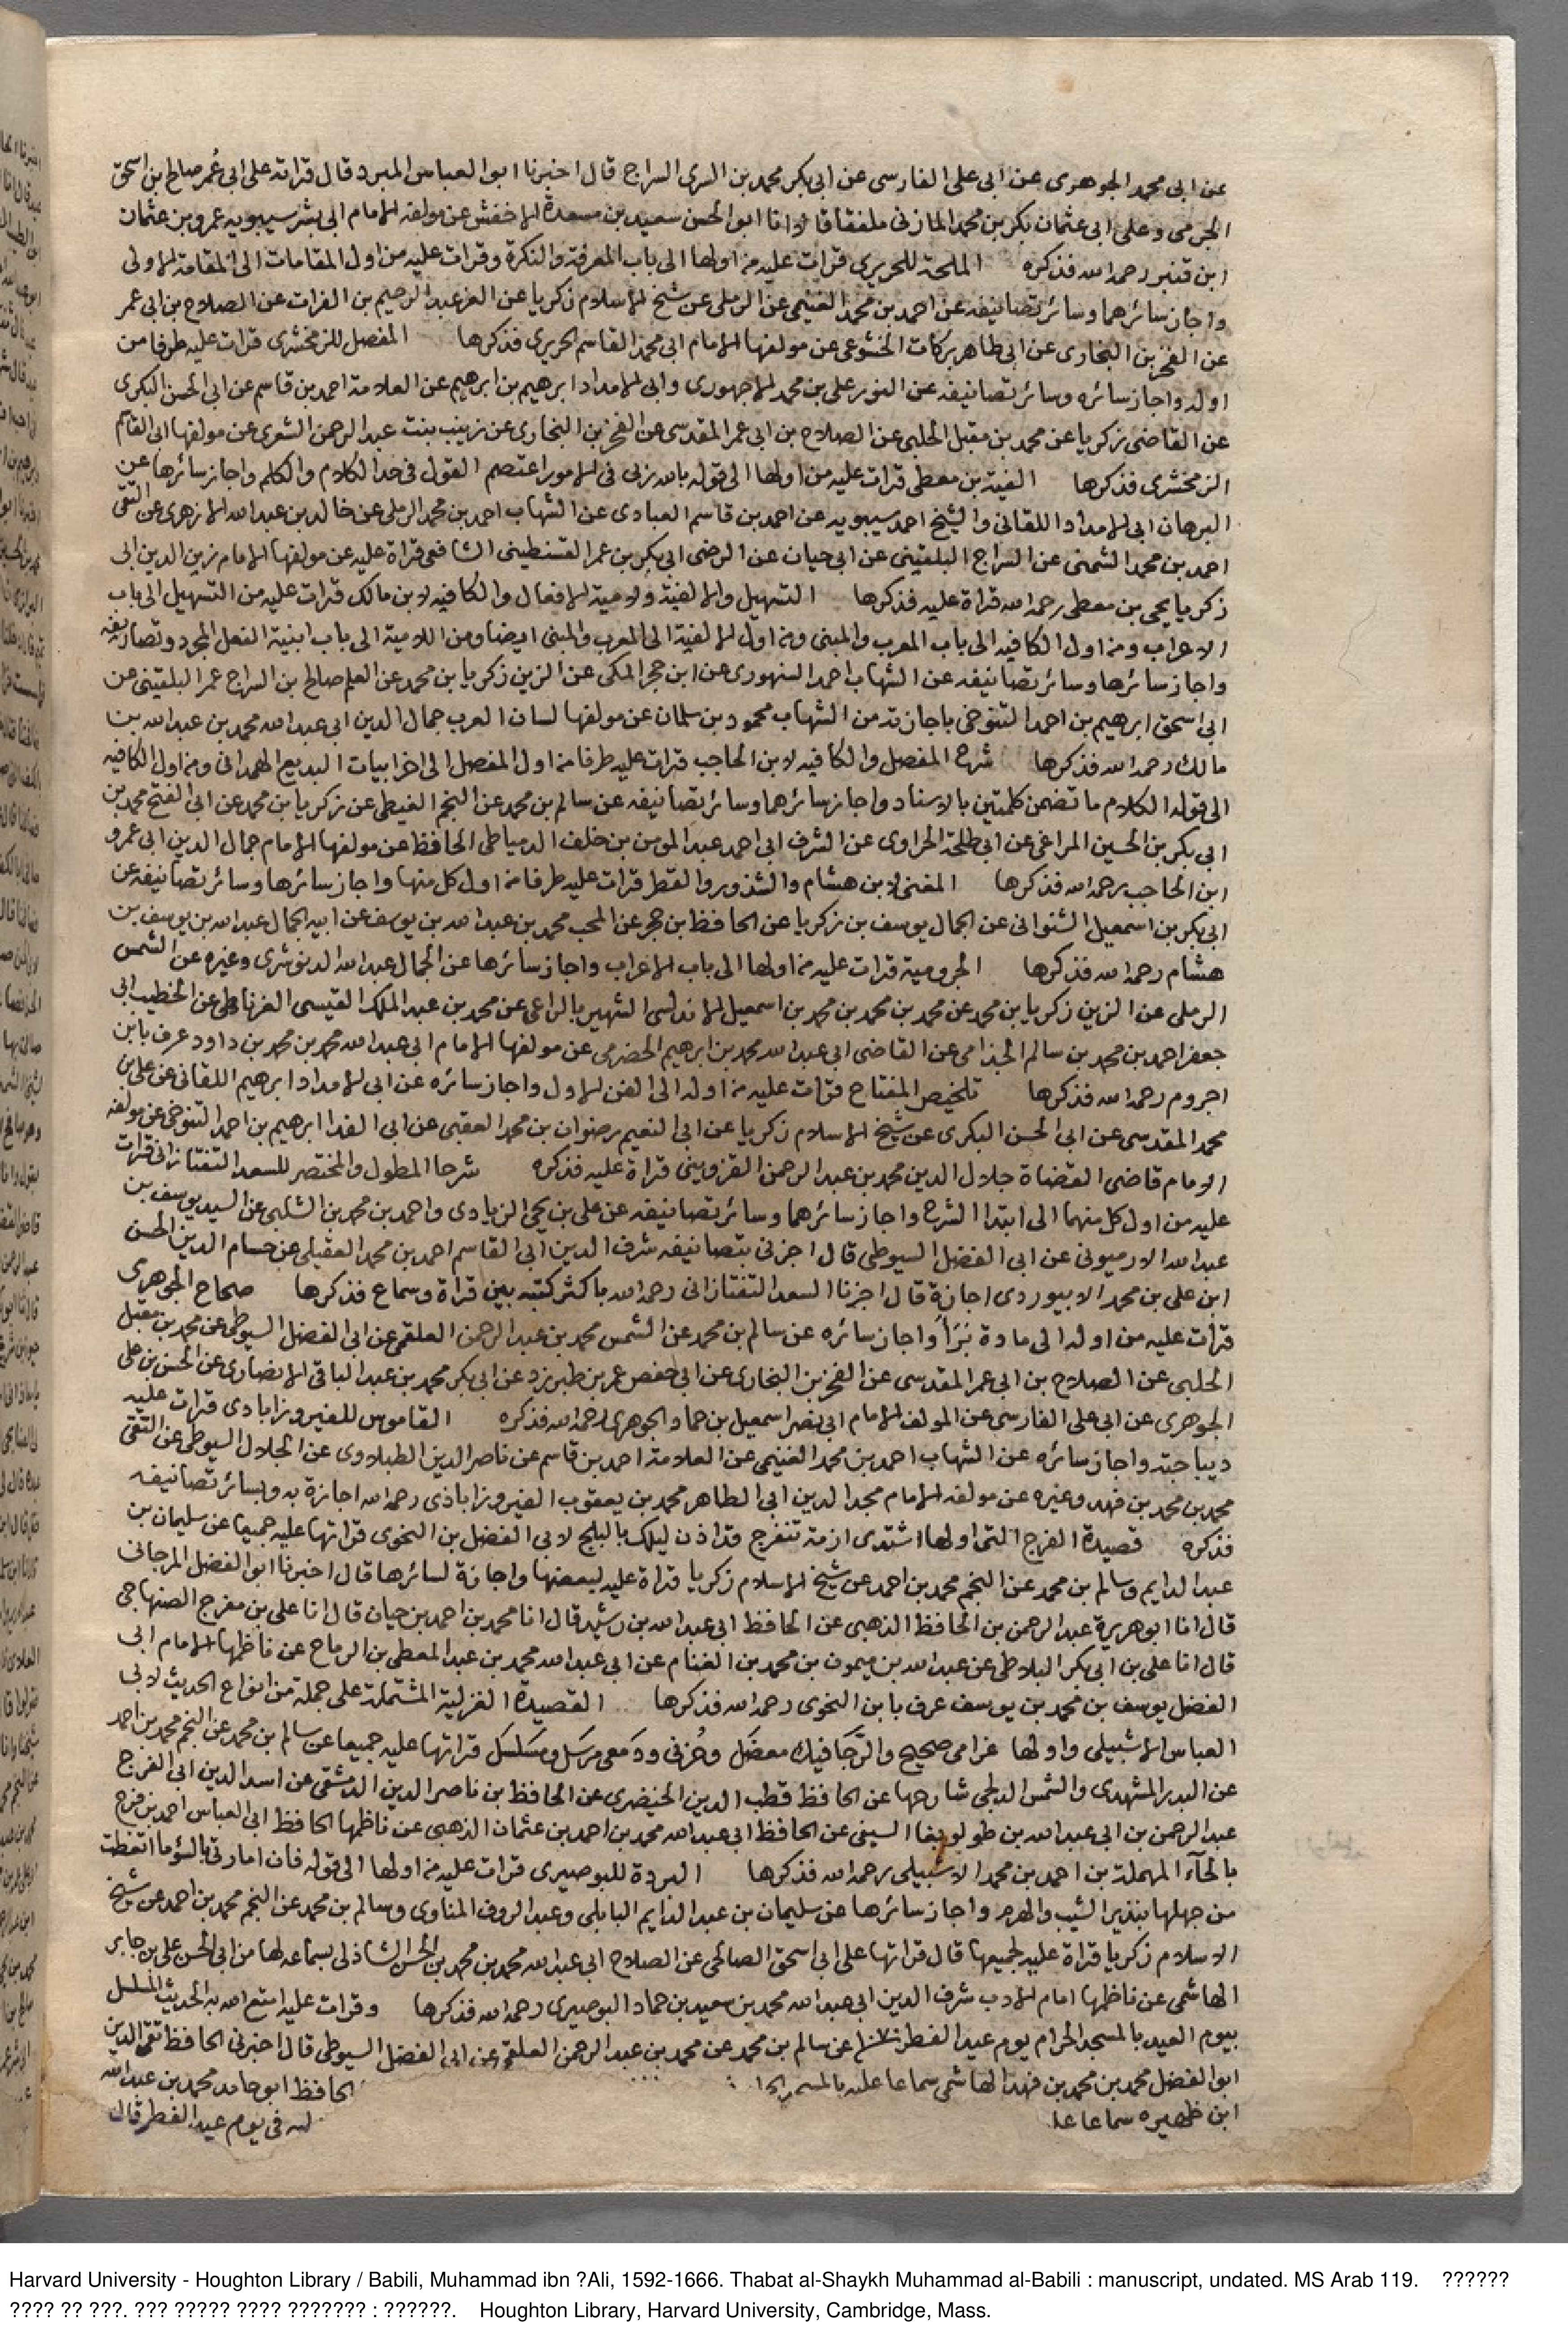 عن ابى محمد الجوهرى عن ابى على الفارسى عن ابى بكر محمد بن السرى السراج قال اخبرنا ابو العباس المبرد قال قراته على ابى عُمر صالح بن اسحق
الجرمى وعلى ابى عثمان بكر بن محمد المازنى ملفقا قالا انا ابو الحسن سعيد بن مسعدة الاخفش عن مولفه الامام ابى بشر سيبويه عمرو بن عثمان
ابن قنبر رحمه الله فذكره الملحة للحريرى قرات عليه من اولها الى باب المعرفة والنكرة وقرات عليه من اول المقامات الى المقامة الاولى
واجاز سائرهما وسائر تصانيفه عن احمد بن محمد الغنيمى عن الرملى عن شيخ الاسلام زكريا عن العز عبد الرحيم بن الفرات عن الصلاح بن ابى عمر
عن الفخر بن البخارى عن ابى طاهر بركات الخشوعى عن مولفها الامام ابى محمد القاسم الحريرى فذكرها المفصل للزمخشرى قرات عليه طرفا من
اوله واجاز سائره وسائر تصانيفه عن النور على بن محمد الاجهورى وابى الامداد ابرهيم بن ابرهيم عن العلامة احمد بن قاسم عن ابى الحسن البكرى
عن القاضى زكريا عن محمد بن مقبل الحلبى عن الصلاح بن ابى عمر المقدسى عن الفخر بن البخارى عن زينب بنت عبد الرحمن الشعرى عن مولفها ابى القاسم
الزمخشرى فذكرها الفية بن معطى قرات عليه من اولها الى قوله بالله ربى فى الامور اعتصم القول فى حد الكلام والكلم واجاز سائرها عن
البرهان ابى الامداد اللقانى والشيخ احمد سيبويه عن احمد بن قاسم العبادى عن الشهاب احمد بن محمد الرملى عن خالد بن عبد الله الازهرى عن التقى
احمد بن محمد الشمنى عن السراج البلقينى عن ابى حيان عن الرضى ابى بكر بن عمر القسنطينى الشافعى قراة عليه عن مولفها الامام زين الدين ابى
زكريا يحيى بن معطى رحمه الله قراة عليه فذكرها التسهيل والالفية ولامية الافعال والكافيه لابن مالك قرات عليه من التسهيل الى باب
الاعراب ومن اول الكافيه الى باب المعرب والمبنى ومن اول الالفية الى المعرب والمبنى ايضا ومن اللامية الى باب ابنية الفعل المجرد وتصاريفه
واجاز سائرها وسائر تصانيفه عن الشهاب احمد السنهورى عن ابن حجر المكى عن الزين زكريا بن محمد عن العلم صالح بن السراج عمر البلقينى عن
ابى اسحق ابرهيم بن احمد التنوخى باجازته من الشهاب محمود بن سلمان عن مولفها لسان العرب جمال الدين ابى عبد الله محمد بن عبد الله بن
مالك رحمه الله فذكرها شرح المفصل والكافيه لابن الحاجب قرات عليه طرفا من اول المفصل الى اخر ابيات البديع الهمدانى ومن اول الكافيه
الى قوله الكلام ما تضمن كلمتين بالاسناد واجاز سائرهما وسائر تصانيفه عن سالم بن محمد عن النجم الغيطى عن زكريا بن محمد عن ابى الفتح محمد بن
ابى بكر بن الحسين المراغى عن ابى طلحة الحراوى عن الشرف ابى احمد عبد المومن بن خلف الدمياطى الحافظ عن مولفها الامام جمال الدين ابى عمرو
ابن الحاجب رحمه الله فذكرها المغنى لابن هشام والشذور والقطر قرات عليه طرفا من اول كل منها واجاز سائرها وسائر تصانيفه عن
ابى بكر بن اسمعيل الشنوانى عن الجمال يوسف بن زكريا عن الحافظ بن حجر عن المحب محمد بن عبد الله بن يوسف عن ابيه الجمال عبد الله بن يوسف بن
هشام رحمه الله فذكرها الجرومية قرات عليه من اولها الى باب الاعراب واجاز سائرها عن الجمال عبد الله الدنوشرى وغيره عن الشمس
الرملى عن الزين زكريا بن محمد عن محمد بن محمد بن محمد بن اسمعيل الاندلسى الشهير بالراعى عن محمد بن عبد الملك القيسى الغرناطى عن الخطيب ابى
جعفر احمد بن محمد بن سالم الجذامى عن القاضى ابى عبد الله محمد بن ابرهيم الحضرمى عن مولفها الامام ابى عبد الله محمد بن محمد بن داود عرف بابن
اجروم رحمه الله فذكرها تلخيص المفتاح قرات عليه من اوله الى الفن الاول واجاز سائره عن ابى الامداد ابرهيم اللقانى عن على بن
محمد المقدسى عن ابى الحسن البكرى عن شيخ الاسلام زكريا عن ابى النعيم رضوان بن محمد العقبى عن ابى الفدا ابرهيم بن احمد التنوخى عن مولفه
الامام قاضى القضاة جلال الدين محمد بن عبد الرحمن القزوينى قراة عليه فذكره شرحا المطول والمختصر للسعد التفتازانى قرات
عليه من اول كل منهما الى ابتدا الشرح واجاز سائرهما وسائر تصانيفه عن على بن يحيى الزيادى واحمد بن محمد بن الشلبى عن السيد يوسف بن
عبد الله الارميونى عن ابى الفضل السيوطى قال اجزنى بتصانيفه شرف الدين ابى القاسم احمد بن محمد العقيلى عن حسام الدين الحسن
ابن على بن محمد الابيوردى اجازة قال اجزنا السعد التفتازانى رحمه الله باكثر كتبه بين قراة وسماع فذكرها صحاح الجوهرى
قرات عليه من اوله الى مادة بَرَأَ واجاز سائره عن سالم بن محمد عن الشمس محمد بن عبد الرحمن العلقمى عن ابى الفضل السيوطى عن محمد بن مقبل
الحلبى عن الصلاح بن ابى عمر المقدسى عن الفخر بن البخارى عن ابى حفص عمر بن طبرزد عن ابى بكر محمد بن عبد الباقى الانصارى عن الحسن بن على
الجوهرى عن ابى على الفارسى عن المولف الامام ابى نصر اسمعيل بن حماد الجوهرى رحمه الله فذكره القاموس للفيروزابادى قرات عليه
ديباجته واجاز سائره عن الشهاب احمد بن محمد الغنيمى عن العلامة احمد بن قاسم عن ناصر الدين الطبلاوى عن الجلال السيوطى عن التقى
محمد بن محمد بن فهد وغيره عن مولفه الامام مجد الدين ابى الطاهر محمد بن يعقوب الفيروزاباذى رحمه الله اجازة به وبسائر تصانيفه
فذكره قصيدة الفرج التى اولها اشتدى ازمة تنفرج قد اذن ليلك بالبلج لابى الفضل بن النحوى قراتها عليه جميعا عن سليمان بن
عبد الدايم وسالم بن محمد عن النجم محمد بن احمد عن شيخ الاسلام زكريا قراة عليه لبعضها واجازة لسائرها قال اخبرنا ابو الفضل المرجانى
قال انا ابو هريرة عبد الرحمن بن الحافظ الذهبى عن الحافظ ابى عبد الله بن رشيد قال انا محمد بن احمد بن حيان قال انا على بن مفرج الصنهاجى
قال انا على بن ابى بكر البلاطى عن عبد الله بن ميمون بن محمد بن الغنام عن ابى عبد الله محمد بن عبد المعطى بن الرماح عن ناظمها الامام ابى
الفضل يوسف بن محمد بن يوسف عرف بابن النحوى رحمه الله فذكرها القصيدة الغزلية المشتملة على جملة من انواع الحديث لابى
العباس الاشبيلى واولها غرامى صحيح والرَّجا فيك معضَل وحُزنى ودَمعى مرسَل ومسَلسَل قراتها عليه جميعا عن سالم بن محمد عن النجم محمد بن احمد
عن البدر المشهدى والشمس الدلجى شارحها عن الحافظ قطب الدين الخيضرى عن الحافظ بن ناصر الدين الدمشقى عن اسد الدين ابى الفرج
عبد الرحمن بن ابى عبد الله بن طولوبغا السيفى عن الحافظ ابى عبد الله محمد بن احمد بن عثمان الذهبى عن ناظمها الحافظ ابى العباس احمد بن فرح
بالحآء المهملة بن احمد بن محمد الاشبيلى رحمه الله فذكرها البردة للبوصيرى قرات عليه من اولها الى قوله فان امارتى بالسؤ ما اتعظت
من جهلها بنذير الشيب والهرم واجاز سائرها عن سليمان بن عبد الدايم البابلى وعبد الروف المناوى وسالم بن محمد عن النجم محمد بن احمد عن شيخ
الاسلام زكريا قراة عليه لجميعها قال قراتها على ابى اسحق الصالحى عن الصلاح ابى عبد الله محمد بن محمد بن الحسن الشاذلى بسماعه لها من ابى الحسن على بن جابر
الهاشمى عن ناظمها امام الادب شرف الدين ابى عبد الله محمد بن سعيد بن حماد البوصيرى رحمه الله فذكرها وقرات عليه امتع الله به الحديث المسلسل
بيوم العيد بالمسجد الحرام يوم عيد الفطر عن سالم بن محمد عن محمد بن عبد الرحمن العلقمى عن ابى الفضل السيوطى قال اخبرنى الحافظ تقى الدين
ابو الفضل محمد بن محمد بن فهد الهاشمى سماعا عليه بالمسجد الحافظ ابو حامد محمد بن عبد الله
ابن ظهيره سماعا فى يوم عيد الفطر قال
Harvard University - Houghton Library / Babili, Muhammad ibn ?Ali, 1592-1666. Thabat al-Shaykh Muhammad al-Babili : manuscript, undated. MS Arab 119. ??????
???? ?? ???. ??? ????? ???? ??????? : ??????. Houghton Library, Harvard University, Cambridge, Mass.